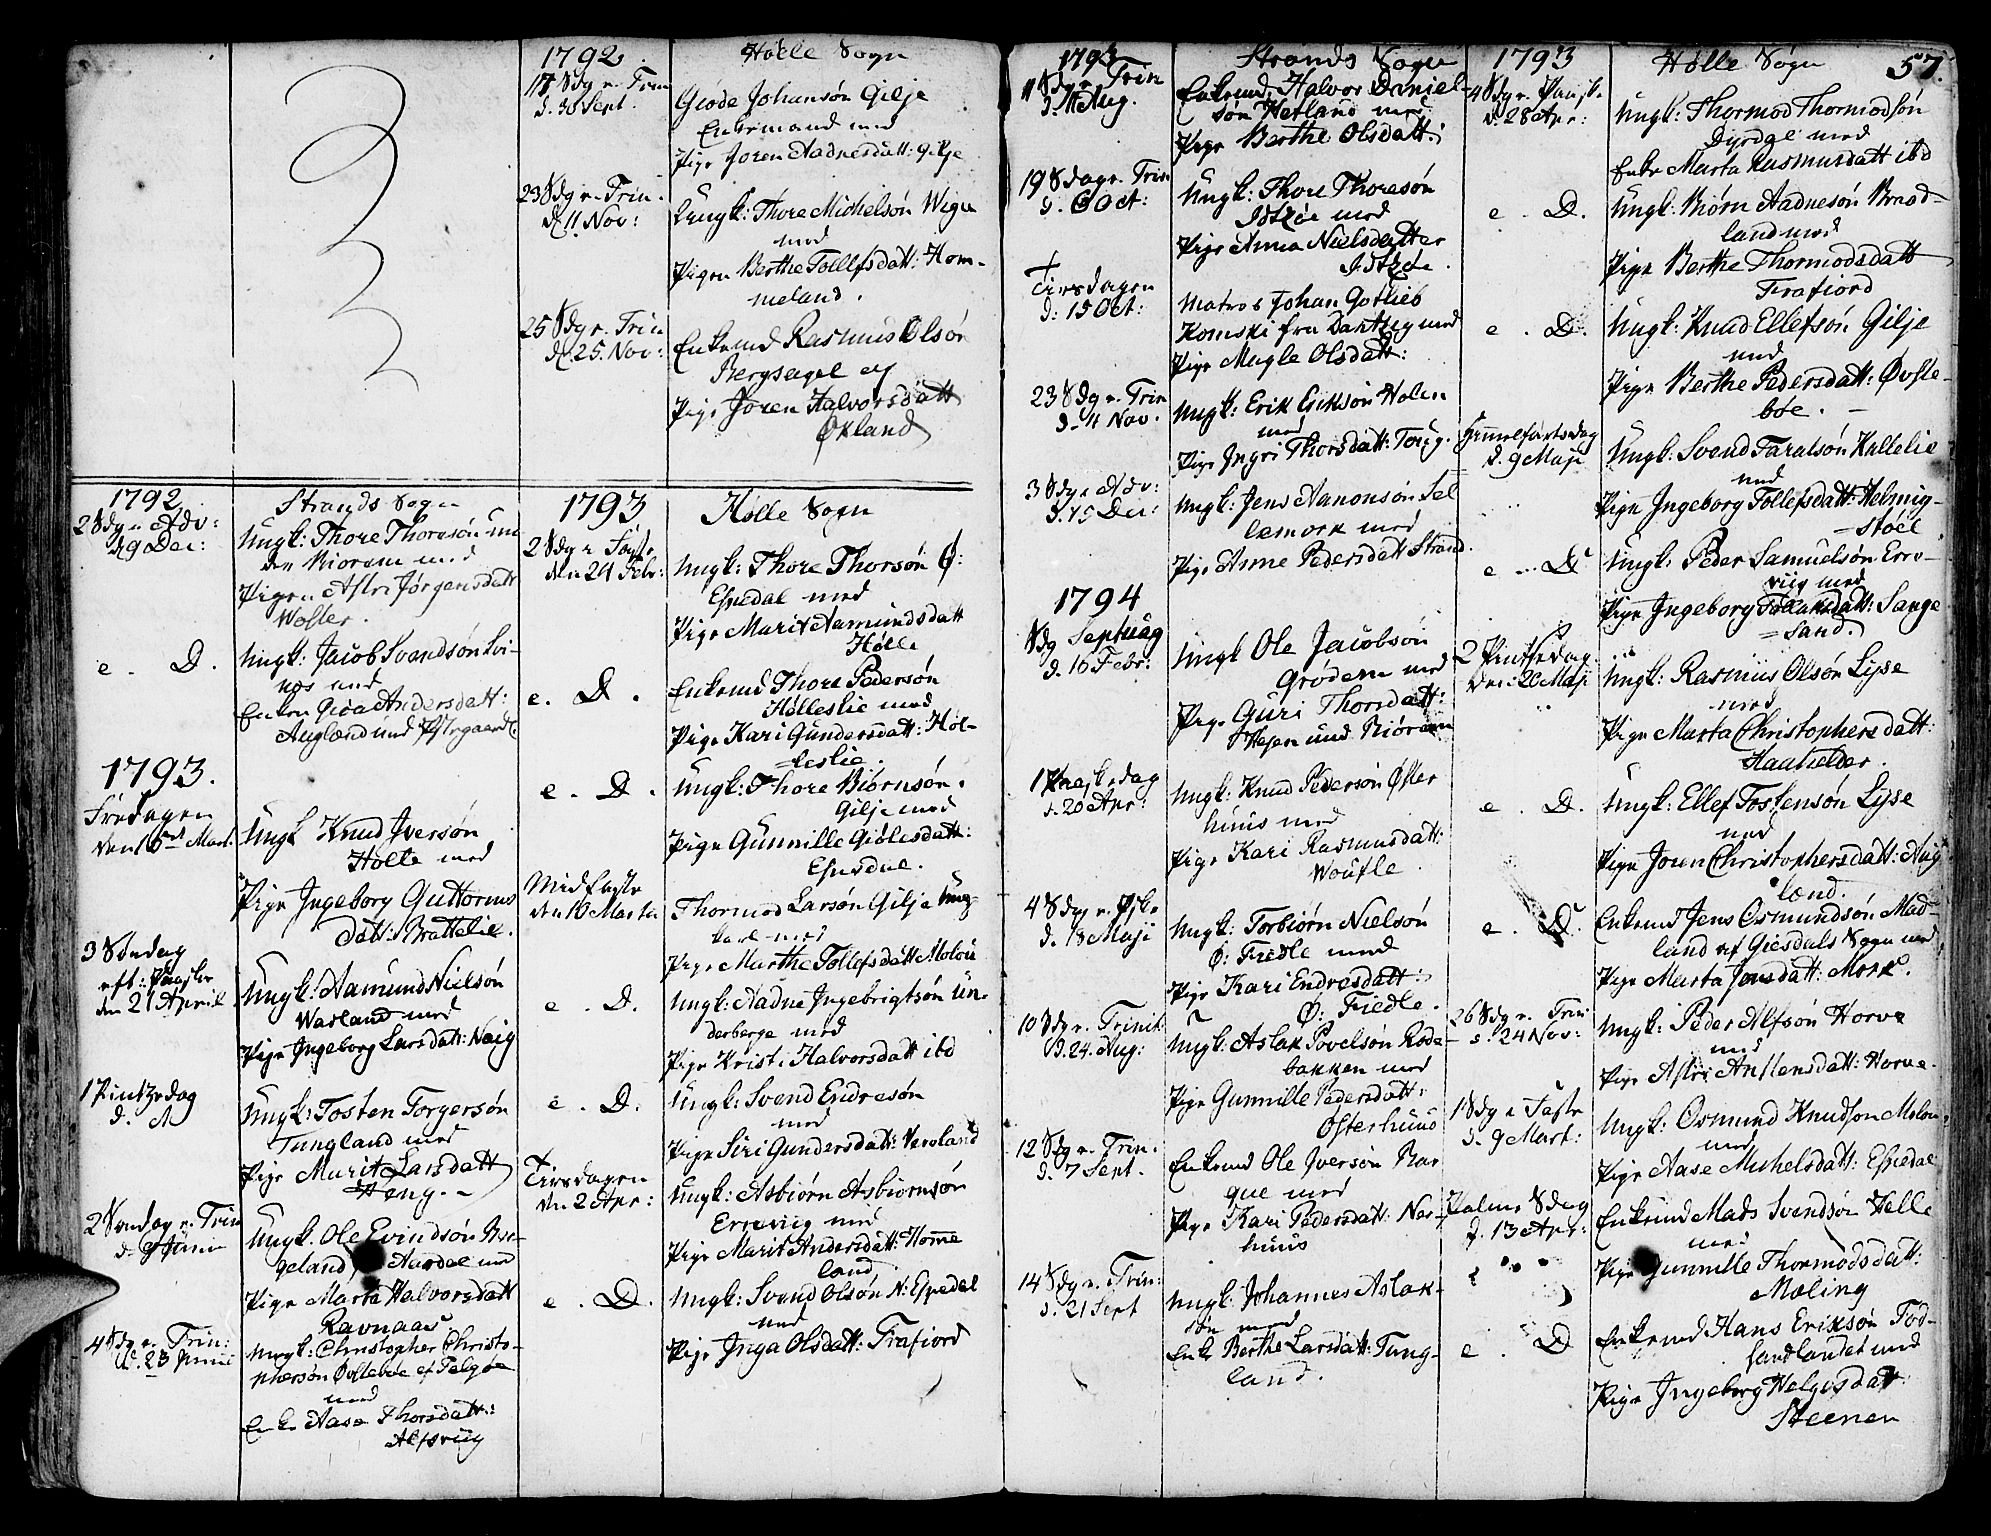 1792.
Hölle Sogn
17 Sdg. e. Trin
d. 30 Sept.
Giøde Johansön Gilje
Enkemand med
Pige Joren Aadnesdatt: Gilje
23 Sdg e. Trin.
d. 11 Nov:
Ungk: Thore Michelsön Wiga
med
Pigen Berthe Tollefsdatt: Hom-
meland.
25 Sdg e. Trin
d. 25. Nov:
Enkemd Rasmus Olsön
Bergsagel og
Pige Joren Halvorsdatt
Økland
1792
Strands Sogn
2 Sdg. Adv:
d. 9 Dec:
Ungk: Thore Thoresön un
den Biørem med
Pigen Astri Jörgensdatt
Woster.
e. D.
Ungk: Jacob Svendsön Svi-
nes med
Enken Gioa Andersdatt:
Auglænd
1793.
Fredagen
den 15de Mart.
Ungk Knud Iversön
Holte med
Pige Ingeborg Guttorms
datt: Brattelie.
3 Söndag
eft: Paaske
den 21 April
Ungk: Aamund Nielsön
Warland med
Pige Ingeborg Larsdatt: Naig
1 Pintzedag
d.
Ungk: Tosten Torgersön
Tungland med
Pige Marit Larsdatt
Heng. -
2 Söndag e. Trin
d. 9 Junii
Ungk. Ole Evindsön
geland Aardal med
Pige Marta Halvorsdatt
Ravnaas
4 Sdg e. Trin:
d. 23 Junii
Ungk: Christopher Christo-
phersön Østeböe af
med
Enke Aase Thorsdatt:
Alfsviig
1793
Hölle Sogn
2 Sdg i Faste
den 24 Febr:
Ungk: Thore Thorsön Ø:
Espedal med
Pige Marit Aamundsdatt
Hölle
e. D.
Enkemd Thore Pedersön
Hölleslie med
Pige Kari Gundersdatt: Höl-
leslie.
e. D.
Ungk: Thore Biörnsön
Gilje med
Pige Gunnille Giölesdatt:
Espedal.
Midfaste
den 10 Martii
Thormod Larsön Gilje Ung-
karl med
Pige Marthe Tollefsdatt Molou
e. D.
Ungk: Aadne Ingebrigtsön Un-
derberge med
Pige Kristi Halvorsdatt ibd
e. D.
Ungk: Svend Endresön
med
Pige Siri Gundersdatt: Versland
Tirsdagen
den 2 Apr:
Ungk: Asbiörn Asbiornsön
Erreviig med
Pige Marit Andersdatt: Homme
land
e. D.
Ungk: Svend Olsön N: Espedal
med
Pige Inga Olsdatt: Frafiord
1793
Strands Sogn
11 Sdg e. Trin
d. 11 Aug.
Enkemd. Halvor Daniel-
sön Hetland med
Pige Berthe Olsdatt:
19 Sdag e. Trin
d. 6 Oct:
Ungk: Thore Thoresön
Idtzöe med
Pige Anna Nielsdatter
Idtzöe.
Tirsdagen
d: 15 Oct:
Matros Johan Gotlieb
Komski fra Dantzig med
Pige Magle Olsdatt:
23 Sdg e. Trin
d. 4 Nov.
Ungk: Erik Eriksön Holen
med
Pige Ingri Thorsdatt: Torig.
3 Sdg i Adv:
d. 15 Dec:
Ungk: Jens Aanonsön Sel
lemork med
Pige Anne Pedersdatt Strand.
1794
Sdg Septuag
d. 16 Febr:
Ungk Ole Jacobsön
Grödem med
Pige Guri Thorsdatt:
Hagen und Biörem
1 Paaskedag
d. 20 Apr:
Ungk: Knud Pedersön Öster
huus med
Pige Kari Rasmusdatt:
Woustle.
4 Sdg e. Pske
d. 18 Maji
Ungk: Torbiörn Nielsön
Ø: Fiedle med
Pige Kari Endresdatt:
Ø: Fiedle.
10 Sdg e. Trinit:
d. 24. Aug:
Ungk: Aslak Povelsön Rode-
bakken med
Pige Gunnille Pedersdatt:
Österhuus
12 Sdg e. Trin.
d. 7 Sept.
Enkemd Ole Iversön Bar
gue med
Pige Kari Pedersdatt: Nor-
huus
14 Sdg e. Trin:
d. 21 Sept
Ungk: Johannes Aslak-
sön med
Enke Berthe Larsdatt: Tung-
land.
1793
Hölle Sogn
57.
4 Sdg e. Paask.
d. 28 Apr:
Ungk: Thormod Thormodsön
Dyrdal med
Enke Marta Rasmusdatt ibd
e. D.
Ungk: Biörn Aadnesön Braad-
land med
Pige Berthe Thormodsdatt
Frafiord
e. D.
Ungk: Knud Ellefsön Gilje
med
Pige Berthe Pedersdatt: Øvste-
böe. -
Himmelfartsdag
d. 9 Maji
Ungk: Svend Taralsön Kallelie
med
Pige Ingeborg Tollefsdatt: Helmig-
stöel
e. D
Ungk: Peder Samuelsön Erre-
viig med
Pige Ingeborg Tollaksdatt: Sange
sand.
2 Pintsedag.
den: 20 Maji
Ungk: Rasmus Olsön Lyse
med
Pige Marta Christophersdatt:
Haahelder.
e. D.
Ungk: Ellef Tostensön Lyse
med
Pige Joren Christophersdatt: Aug
lænd.
e. D.
Enkemd Jens Osmundsön Mad-
land af Giesdals Sogn med
Pige Marta Jonsdatt: Mork.
26 Sdg e. Trin
d. 24 Nov:
Ungk: Peder Alfsön Horve
med
Pige Astri Anstensdatt: Horve.
1 Sdg i Faste
d. 9 Mart:
Ungk: Osmund Knudsön Molou
med
Pige Aase Michelsdatt: Espedal
Palme Sdag
d. 13 Apr:
Enkemd Mads Svendsön Helle
med
Pige Gunnille Thormodsdatt:
Moling
e. D
Enkemd Hans Eriksön Fod-
landet med
Pige Ingeborg Helgesdatt
Steenen